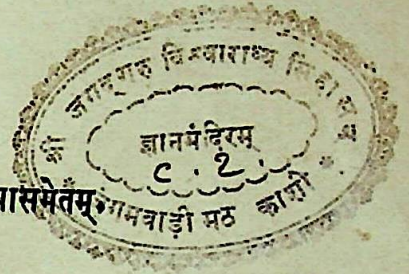 श्री जगद्गुरु विश्वाराध्य
ज्ञानमंदिरम्
C. 2.
जंगमवाड़ी मठ काशी
समेतम्